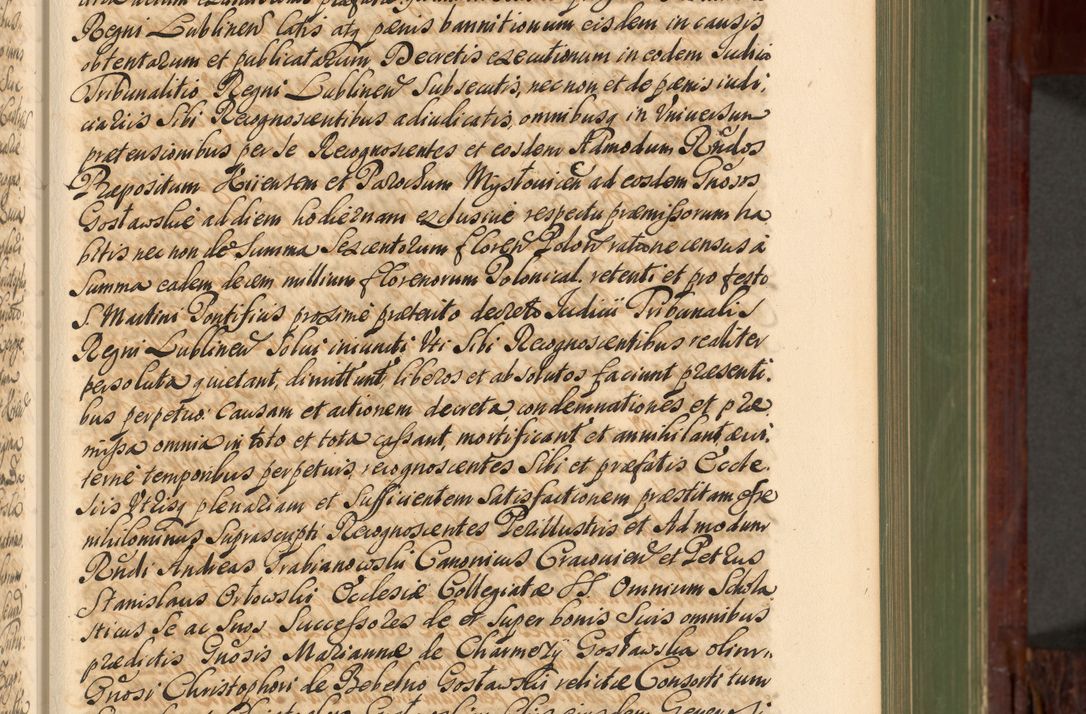 Regni Lublinen latis atq pænis bannitionum eisdem in causis
obtentarum et publicatarum Decretis executionum in eodem Judicio
Tribunalitio Regni Lublinen Subsecutis, nec non et de pænis iudi,
ciariis Sibi Recognoscentibus adiudicatis, omnibusq in Universum
prætensionibus per se Recognoscentes et eosdem Admodum Rndos
Præpositum Kiiensem et Parochum Mystouicen ad eosdem Gnosos
Gostawskie ad diem hodiernam exclusiue respectu præmissorum ha
bitis nec non de Summa Sexcentorum floren Polon ratione census à
Summa eadem decem millium florenorum Polonical. retenti et pro festo
S. Martini Pontificis proxime præterito decreto Judicii Tribunalis
Regni Lublinen Solui iniuncti Uti Sibi Recognoscentibus realiter
persoluta quietant, dimittunt, liberos et absolutos faciunt præsenti,
bus perpetuo: Causam et actionem decreta condemnationes et præ
missa omnia in toto et tota cassant, mortificant et annihilant, æui,
terne temporibus perpetuis, recognoscentes Sibi et præfatis Eccle,
siis Utrisq plenariam et Sufficientem Satisfactionem præstitam esse
nihilominus Suprascripti Recognoscentes Perillustris et Admodum
Rndi Andreas Grabianowski Canonicus Cracouien et Petrus
Stanislaus Orłowski Ecclesiæ Collegiatæ SS. Omnium Schola
sticus Se ac Suos Successores de et Super bonis Suis omnibus
prædictis Gnosis Mariannæ de Charmezÿ Gostawska olim
Gnosi Christophori de Bebelno Gostawski relictæ Consorti tum